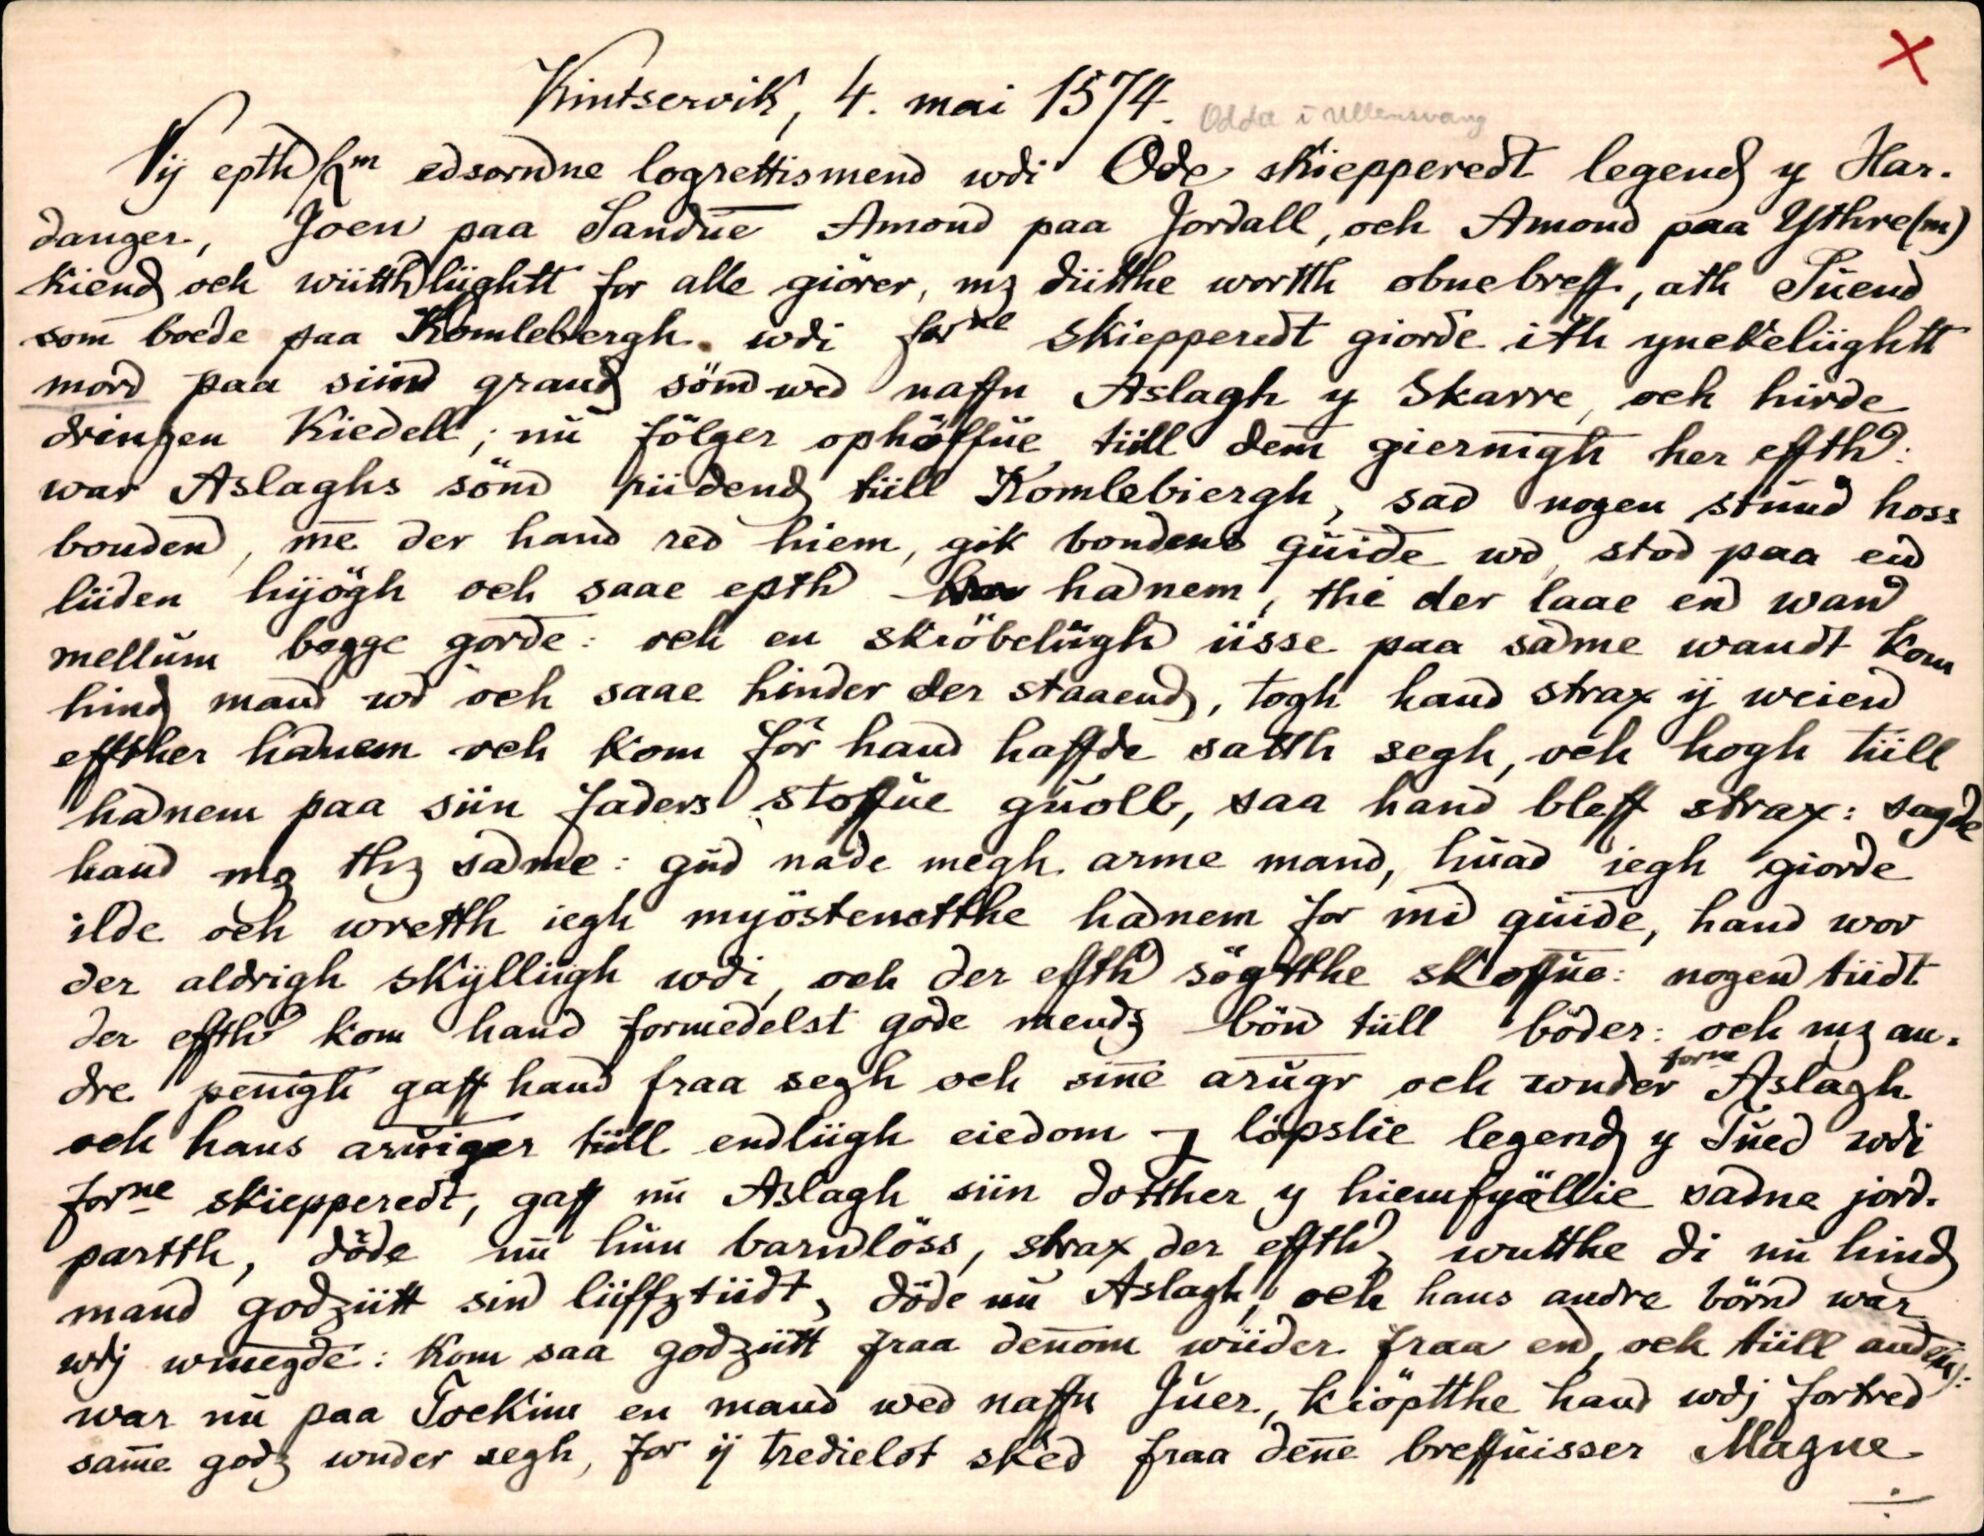 Kintservik, 4. mai 1574.
Odda i Ullensvang
Vij epth edsorndne logrettismend wdi Ode skiepperedt legendz y Har-
danger, Joen paa Sandue Amond paa Jordall, och Amond paa Ythre(m)
kiendz och wiitthliightt for alle giörer, mz diitthe wortth obnebreff, ath Suend
som boede paa Komlebergh wdi forne skiepperedt giorde ith ynckeliightt
mord paa siind grandz sömd wed naffn Aslagh y Skarre, och hirde
dringen Kiedell; nu fölger ophöffue tiill dem giernigh her effth:
war Aslaghs sönd riidendz tiill Komlebiergh, sad nogen stund hoss
bonden, me der hand red hiem, gik bondens quide wd, stod paa eid
liiden hijögh och saae epth hanem, thi der laae end wand
mellum begge gorde: och en skröbeliigh iisse paa sadme wandt kom
hindz mand wd och saae hinder der staaendz, togh hand strax ij weiend
effther hanem och kom för hand haffde satth segh, och hogh tiill
hadnem paa siin faders stoffue guolb, saa hand bleff strax: sagde
hand mz thz sadme: gud nade megh arme mand, huad iegh giorde
ilde och wretth iegh myöstenctthe hadnem for mid quide, hand wor
der aldrigh skÿlliigh wdi, och der effth sögtthe skoffue: nogend tiidt
der effth kom hand formedelst gode mendz bön tiill böder: och mz an-
dre penigh gaff hand fraa segh och sine arugr och wnder forne Aslagh
och hans aruiger tiill endliigh eiedom j löpslie legendz y Tued wdi
forne skiepperedt, gaff nu Aslagh siin dotther y hiemfyöllie sadne jord-
partth, döde nu hun barnlöss, strax der effth, wutthe di nu hindz
mand godziitt sin liiffztiidt, döde nu Aslagh, och hans andre börnd war
wdj wmegde: kom saa godziitt fraa denom wiider fraa end, och tiill anden:
war nu paa Tockim en mand wed naffn Juer, kiöptthe hand wdj fortred
same godz wnder segh, for ij tredielot sked fraa dene breffuisser Magne
÷